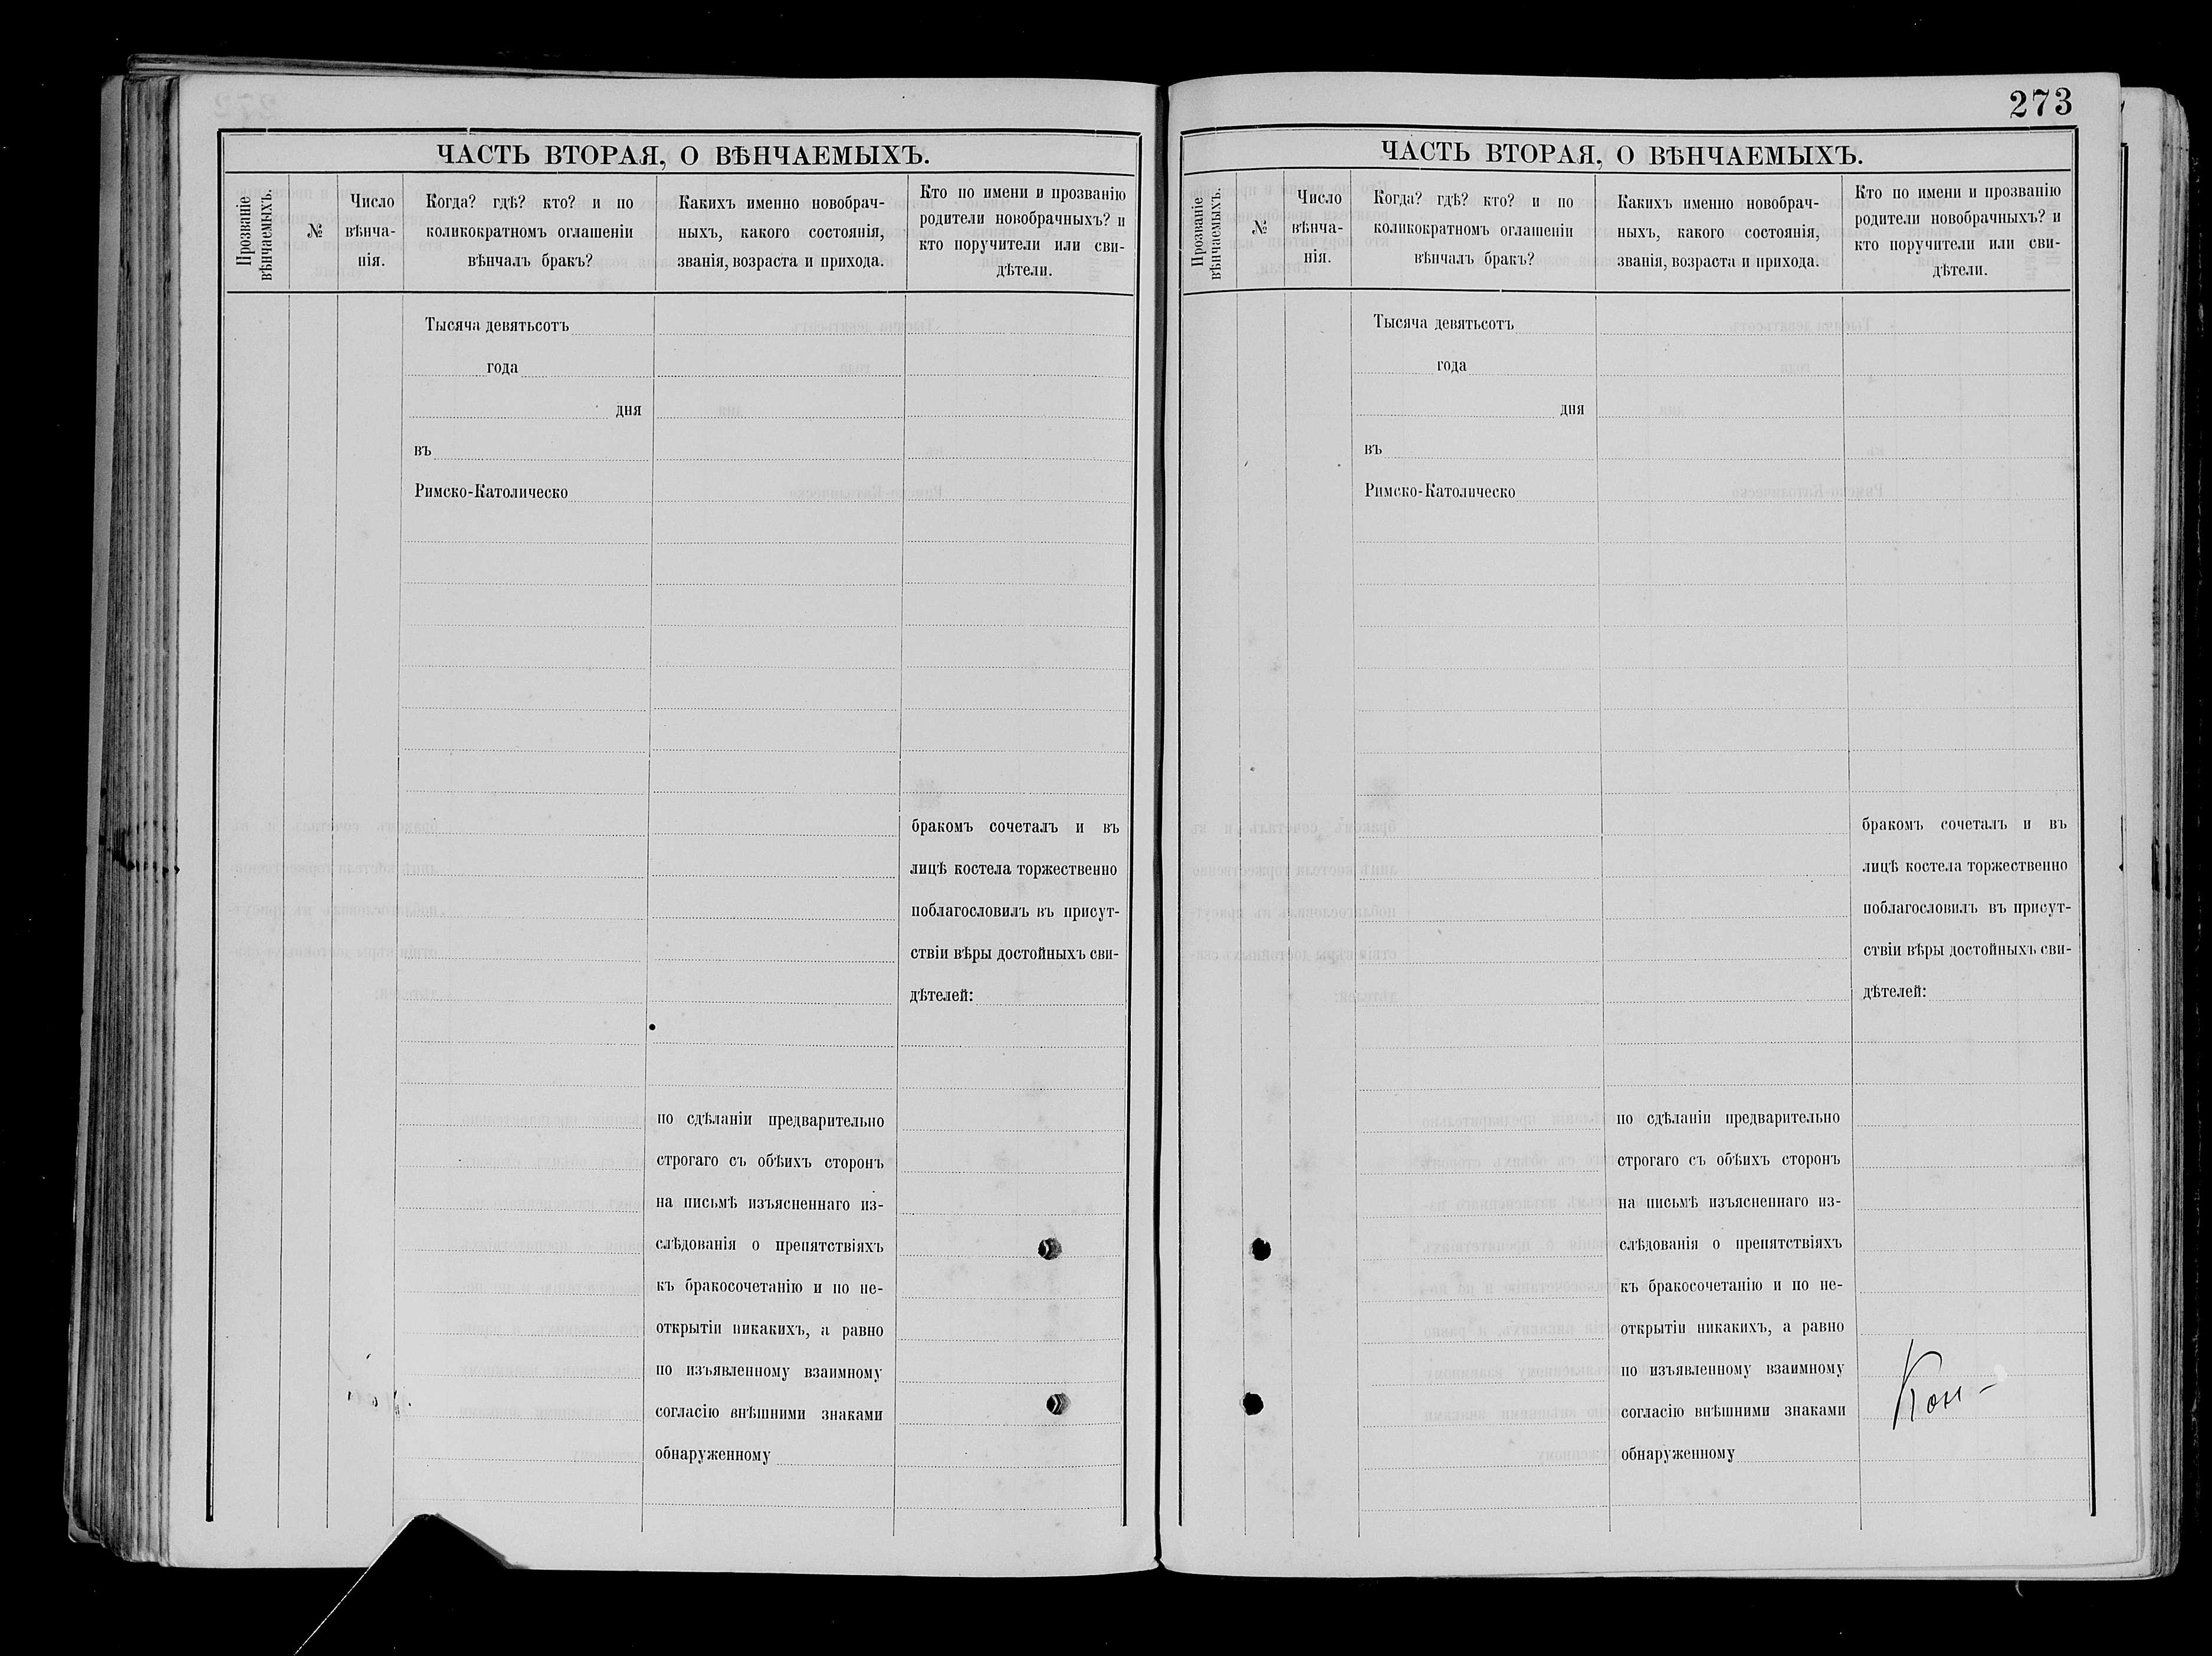 ЧАСТЬ ВТОРАЯ, О ВѢНЧАЕМЫХЪ.
Прозваніе
вѣнчаемыхъ.
№
Число
вѣнча-
нія.
Когда? гдѣ? кто? и по
коликократномъ оглашеніи
вѣнчалъ бракъ?
Какихъ именно новобрач-
ныхъ, какого состоянія,
званія, возраста и прихода.
Кто по имени и прозванію
родители новобрачныхъ? и
кто поручители или сви-
дѣтели.
Тысяча девятьсотъ
года
дня
въ
Римско-Католическо
по сдѣланіи предварительно
строгаго съ обѣихъ сторонъ
на письмѣ изъясненнаго из-
слѣдованія о препятствіяхъ
къ бракосочетанію и по не-
открытіи никакихъ, а равно
по изъявленному взаимному
согласію внѣшними знаками
обнаруженному
бракомъ сочеталъ и въ
лицѣ костела торжественно
поблагословилъ въ присут-
ствіи вѣры достойныхъ сви-
дѣтелей:
273
ЧАСТЬ ВТОРАЯ, О ВѢНЧАЕМЫХЪ.
Прозваніе
вѣнчаемыхъ.
№
Число
вѣнча-
нія.
Когда? гдѣ? кто? и по
коликократномъ оглашеніи
вѣнчалъ бракъ?
Какихъ именно новобрач-
ныхъ, какого состоянія,
званія, возраста и прихода.
Кто по имени и прозванію
родители новобрачныхъ? и
кто поручители или сви-
дѣтели.
Тысяча девятьсотъ
года
дня
въ
Римско-Католическо
по сдѣланіи предварительно
строгаго съ обѣихъ сторонъ
на письмѣ изъясненнаго из-
слѣдованія о препятствіяхъ
къ бракосочетанію и по не-
открытіи никакихъ, а равно
по изъявленному взаимному
согласію внѣшними знаками
обнаруженному
бракомъ сочеталъ и въ
лицѣ костела торжественно
поблагословилъ въ присут-
ствіи вѣры достойныхъ сви-
дѣтелей:
Кон-